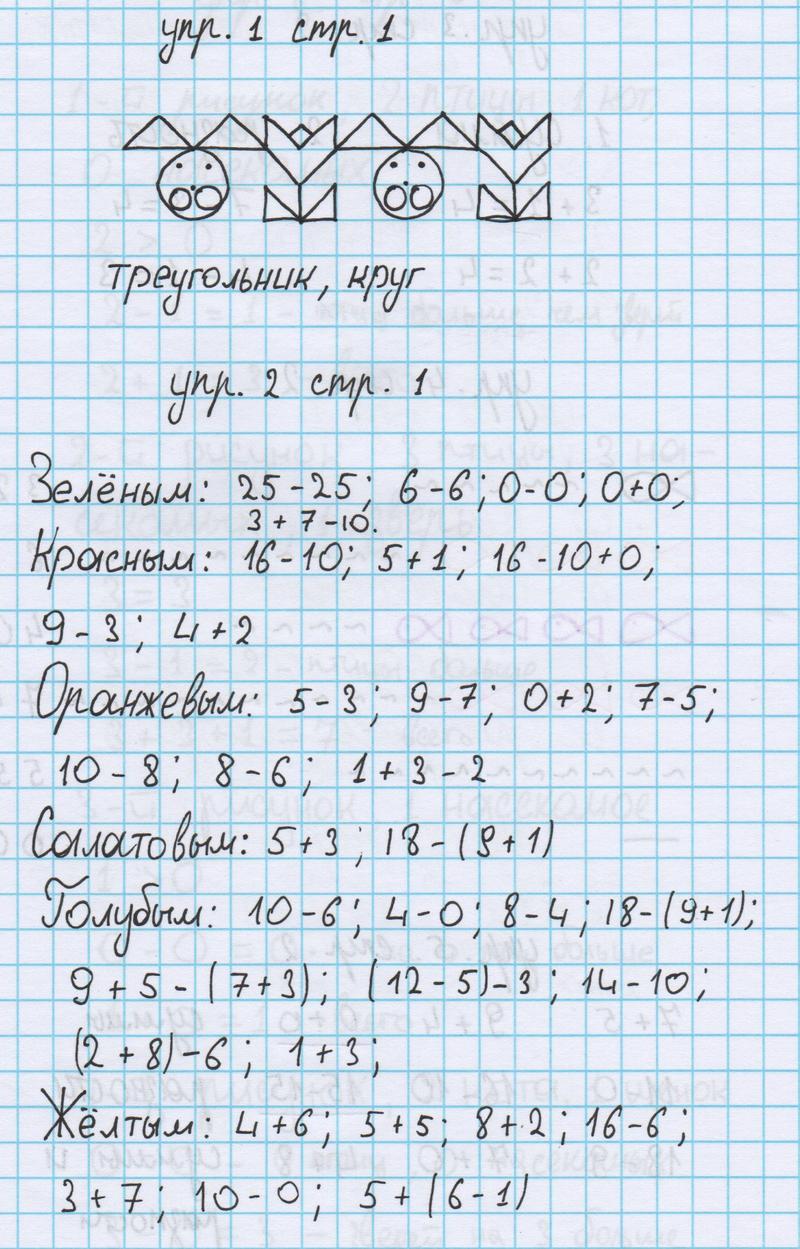 упр. 1 стр. 1
треугольник, круг
упр. 2 стр. 1
Зелёным: 25-25; 6-6; 0-0; 0+0;
3+7-10.
Красным: 16-10; 5+1; 16-10+0;
9-3; 4+2
Оранжевым: 5-3; 9-7; 0+2; 7-5;
10-8; 8-6; 1+3-2
Салатовым: 5+3; 18-(9+1)
Голубым: 10-6; 4-0; 8-4; 18-(9+1);
9+5-(7+3); (12-5)-3; 14-10;
(2+8)-6; 1+3;
Жёлтым: 4+6; 5+5; 8+2; 16-6;
3+7; 10-0; 5+(6-1)